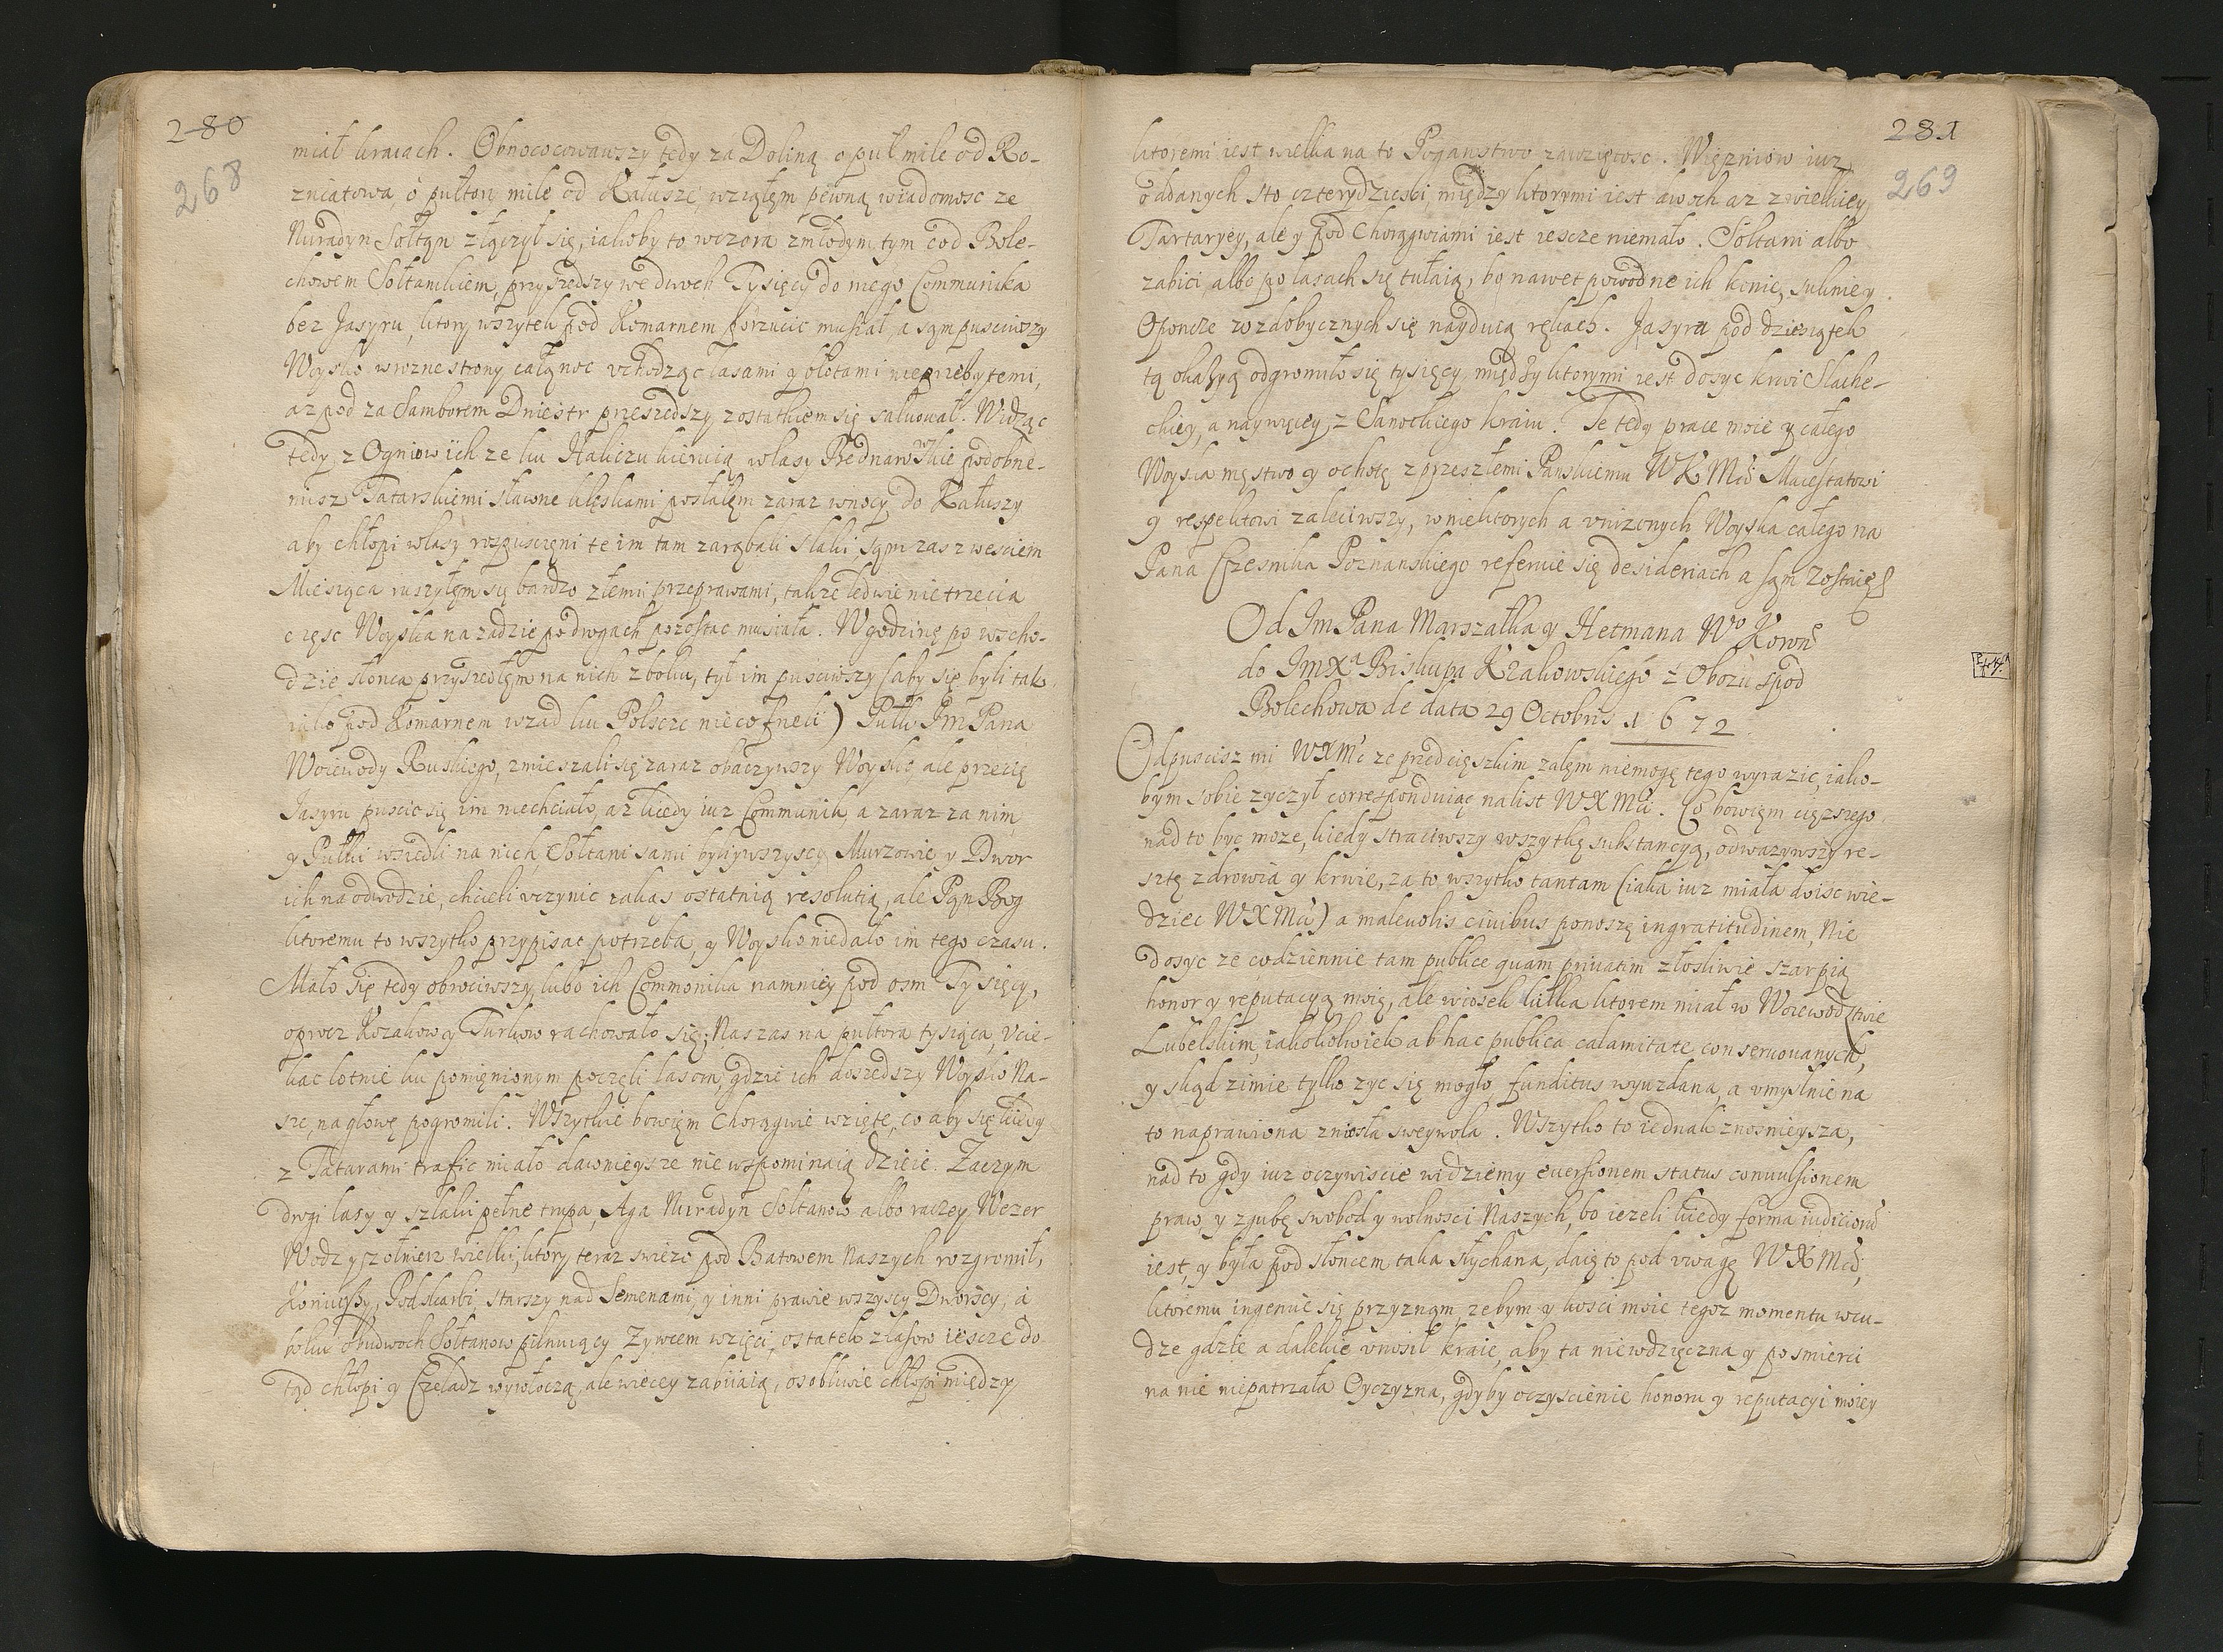 280
268
miał kraiach. Obnococowawszy tedy za Doliną o puł mile od Ro-
zniatowa, o pułtory mile od Kałusze, wziąłem pewną wiadomosc ze
Nuradyn Sołtan złączył się, iakoby to wczora z młodym tym cod Bole-
chowem Sołtanikiem, przyszedszy we dwoch Tysięcy do niego Communika
bez Jasyru, ktory wszytek pod Komarnem porzucic musiał, a sąm pusciwszy
Woysko w rozne strony całą noc vchodząc lasami y błotami nieprzebytemi,
az pod za Samborem Dniestr przeszedszy z ostatkiem się salwował. Widząc
tedy z Ogniow ich ze ku Haliczu kieruią w lasy Bednarowskie podobne-
nusz Tatarskiemi sławne klęskami posłałem zaraz w nocy do Kałuszy
aby chłopi w lasy rospusceni te im tam zarąbali slaki, sąm zas z wesciem
Miesiąca ruszyłem się bardzo złemi przeprawami, tak ze ledwie nie trzecia
częsc Woyska na zadzie po drogach pozostac musiała. W godzinę po wscho-
dzie słonca przyszedłem na nich z boku, tył im pusciwszy (aby się byli tak
iako pod Komarnem wzad ku Polscze nie cofneli) Pułk Jm Pana
Woiewody Ruskiego, zmieszali się zaraz obaczywszy Woysko, ale przecię
Jasyru puscic się im niechciało, az kiedy iuz Communik, a zaraz za nim
y Pułki wsiedli na nich, Sołtani sami byli y wszyscy Murzowie y Dwor
ich na odwodzie, chcieli vczynic zakąs ostatnią resolutią, ale Pąn Bog
ktoremu to wszytko przypisac potrzeba, y Woysko niedało im tego czasu.
Mało się tedy obrociwszy, lubo ich Commonika namniey pod osm Tysięcy,
oprocz Kozakow y Turkow rachowało się; Naszas na pułtora tysiąca, Vcie-
kac lotnie ku pomięnionym poczęli lasom, gdzie ich doszedszy Woysko Na-
sze, na głowę pogromili. Wszytkie bowięm Chorągwie wzięte, co aby się kiedy
z Tatarami trafic miało dawnieysze nie wspominaią dzieie. Zaczym
drogi lasy y szlaki pełne trupa, Aga Nuradyn Sołtanow albo raczey Wezer
Wodz y szołnierz wielki, ktory teraz swiezo pod Batowem Naszych rozgromił,
Koniuszy, Podskarbi, starszy nad Semenami, y inni prawie wszyscy Dworscy, a
boku obudwoch Sołtanow pilnuiący Zywcem wzięci, ostatek z lasow iescze do-
tąd chłopi y Czeladz wywłoczą, ale więcey zabiiaią, osobliwie chłopi między
281
269
ktoremi iest wielka na to Poganstwo zawziętosc. Więzniow iuz
oddanych sto czterydziesci, między ktorymi iest dwoch az z wielkiey
Tartaryey, ale y pod Chorągwiami iest iescze niemało. Sołtani albo
zabici albo po lasach się tułaią, bo nawet powodne ich konie, suknie y
Oponcze w zdobycznych się nayduią rękach. Jasyru pod dziesiątek
tą okazyą odgromiło się tysięcy, między ktorymi iest dosyc krwi Slache-
ckiey, a naywięcey z Sanockiego kraiu. Te tedy prace moie y całego
Woyska męstwo y ochotę z przeszłemi Panskiemu WKMci Maiestatowi
y respektowi zaleciwszy, w niektorych a vnizonych Woyska całego na
Pana Czesnika Poznanskiego referuie się desideriach a sąm zostaię
Od Jm Pana Marszałka y Hetmana Wo Koron
do JmXa Biskupa Krakowskiego z Obozu spod
Bolechowa de data 29 Octobris 1672
Odpuscisz mi WXMc ze przed cięszkim zalem niemogę tego wyrazic, iako-
bym sobie zyczył corresponduiąc na list WXMci. Co bowięm cięzszego
nad to byc moze, kiedy straciwszy wszytkę substancyą, odwazywszy re-
sztę zdrowia y krwie, za to wszytko tantam (iaka iuz miała doisc wie-
dziec WXMci) a maleuolis ciuibus ponoszę ingratitudinem, Nie
dosyc ze codziennie tam publice quam priuatim złosliwie szarpią
honor y reputacyą moię, ale wiosek kilka ktorem miał w Woiewodztwie
Lubelskim, iakokolwiek ab hac publica calamitate conseruowanych,
y skąd zimie tylko zyc się mogło, funditus wyuzdana, a vmyslnie na
to naprawiona zniosła sweywola. Wszytko to iednak znosnieysza,
nad to gdy iuz oczywiscie widziemy euersionem status conuulsionem
praw, y zgubę swobod y wolnosci Naszych, bo iezeli kiedy forma iudiciorum
iest, y była pod słoncem taka słychana, daię to pod vwagę WXMci,
ktoremu ingenue się przyznąm, zebym y kosci moie tegoz momentu w cu-
dze gdzie a dalekie vnosił kraie, aby ta niewdzięczna y po smierci
na nie niepatrzała Oyczyzna, gdyby oczyscienie honoru y reputacyi moiey